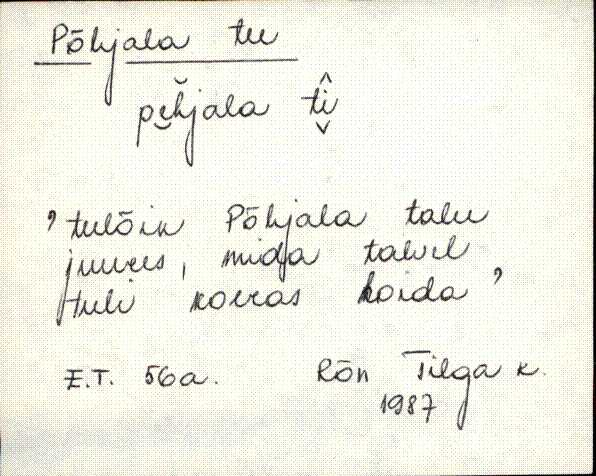 Põhjala tee
pe̮h̆jala tî
'teelõik Põhjala talu
juures, mida talvel
tuli korras hoida'
E.T. 56a. Rõn Tilga k.
1987